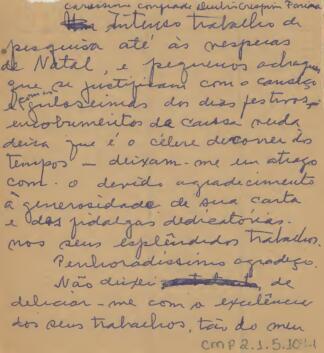 carissimo compadre
Intenso trabalho de
pesquisa até às vesperas
de Natal, e pequenos achaques
que se justificam com o cansaço
e guloseimas dos dias festivos,
encobrimentos da causa
deixa que é o célere decorrer dos
tempos — deixam-me em atrazo
com o devido agradecimento
à generosidade de sua carta
e das fidalgas dedicatórias
nos seus esplêndidos trabalhos.
Penhoradissimo agradeço.
Não deixei de
deliciar-me com a excelência
dos seus trabalhos, tão do meu
CMP 2.1.5.104.1